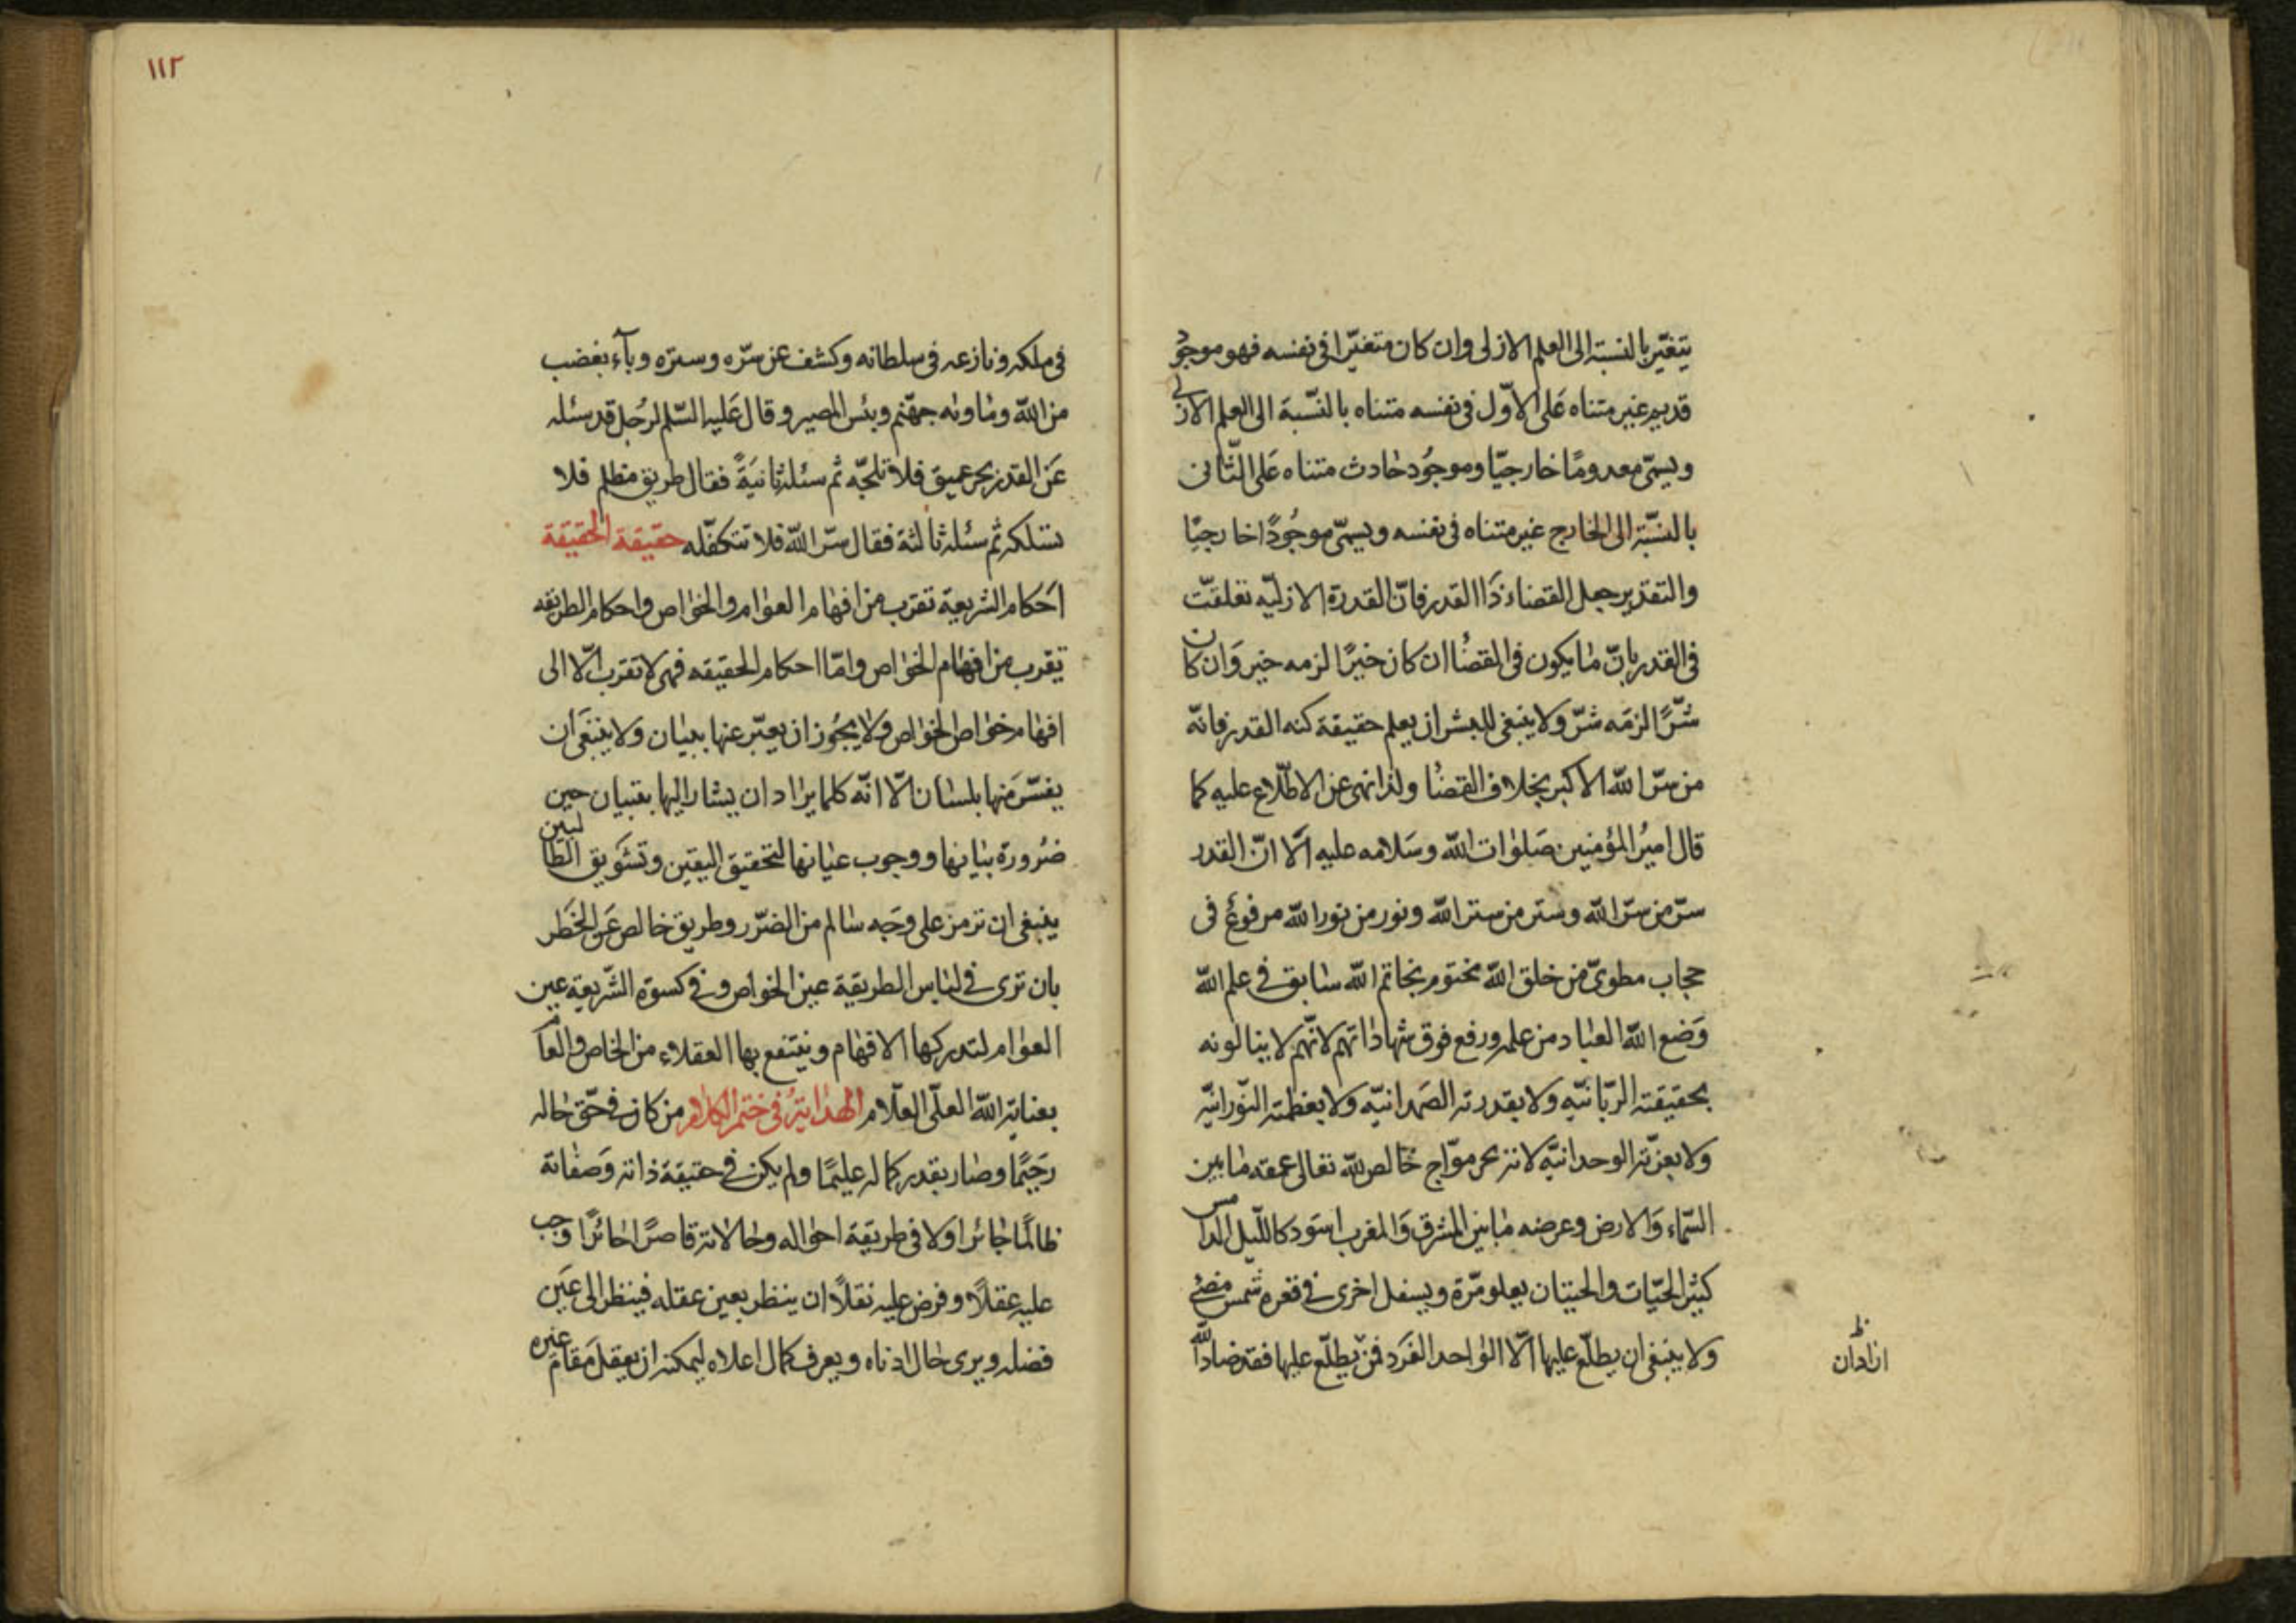 يتغيّر بالنسبة الى العلم الازلى وان كان متغيّرا فى نفسه فهو موجود
قديم غير متناه عَلى الاوّل فى نفسه متناه بالنّسبة الى العلم الازلى
ويسمّى معدومًا خارجيّا وموجُود حادث متناه عَلى الثّانى
بالنسّبة الى الخارج غير متناه فى نفسه ويسمّى موجُودًا خارجيّا
والتقدير جعل القضاء ذَا القدر فانّ القدرة الازليّه تعلقت
فى القدر بانّ ما يكون فى القضا ان كان خيرًا لزمه خير وَان كان
شرًّا لزمَه شرّ ولا ينبغى للبشر ان يعلم حقيقة كنه القدر فانّه
من سرّ الله الاكبر بخلاف القضا ولذا نهى عن الاطّلاع عليه كما
قال اميرُ المؤمنين صَلوات الله وسَلامه عليه الَا انّ القدر
سرّ من سرّ الله وستر من ستر الله ونور من نور الله مرفوعٌ فى
حجاب مطوىّ من خلق الله مختوم بخاتم الله سابق فى علم الله
وَضع الله العباد من علمه ورفع فوق شهاداتهم لانّهم لا ينالونه
بحقيقته الربّانيّه ولا بقدرته الصَمدانيّه ولا بعظمته النّورانيّه
ولا بعزّته الوحدانيّه لانه بحر موّاج خالص لله تعالى عمقه ما بين
السّماء وَالارض وعرضه مابين المشرق وَالمغرب اسَود كاللّيل الدامس
كثير الحَيّات والحيتان يعلو مّرة ويسفل اخرى فى قعره شمس مضئ
ولا ينبغى ان يطلّع عليها الّا الواحد الفَرد فمن يطلّع عليها فقد ضادّ الله
ظ
اراد ان
١١٢
فى ملكه ونازعه فى سلطانه وكشف عن سّره وستره وبآء بغضب
من الله وماوٰنه جهنّم وبئس المصير وقال عَليه السّلم لرجُل قد سئله
عَن القدر بحر عميق فلا تلجّه ثم سئله ثانيَةً فقال طريق مظلم فلا
تسلكه ثم سئله ثالثة فقال سّر الله فلا تتكفّله حقيقة الحقيقة
احَكام الشريعة تقرب من افهام العوام والخواص واحكام الطريقه
تقرب من افهام الخواص وامّا احكام الحقيقه فهى لا تقرب الّا الى
افهام خواص الخواص ولا يجُوز ان يعبّر عنها ببيان ولا ينبغَى ان
يفسّر منَها بلسان الّا انّه كلما يراد ان يشار اليها بتبيان حين
ضرورة بيانها ووجوب عيانها لتحقيق اليقين وتشَويق الطالبين
ينبغى ان ترمز على وجَه سالم من الضّرر وطريق خالص عَن الخَطر
بان ترى فى لباس الطريقة عين الخواص وفى كسوة الشّريعة عين
العوام لتدركها الافهام وينتفع بها العقلاء من الخاص والعام
بعناية الله العلّى العلّام الهداية فى ختم الكلام من كان فى حقّ حاله
رحيمًا وصار بقدر كماله عليمًا ولم يكن فى حقيقة ذاته وَصفاته
ظالمًا جائرا ولا فى طريقة احواله وحالاته قاصرًا حائرًا وَجب
عليه عقلًا وفرض عليه نقلًا ان ينظر بعين عقله فينظر الى عَين
فضله ويرى حال ادناه ويعرف كمال اعلاه ليمكنه ان يعقل مَقامَ غيره